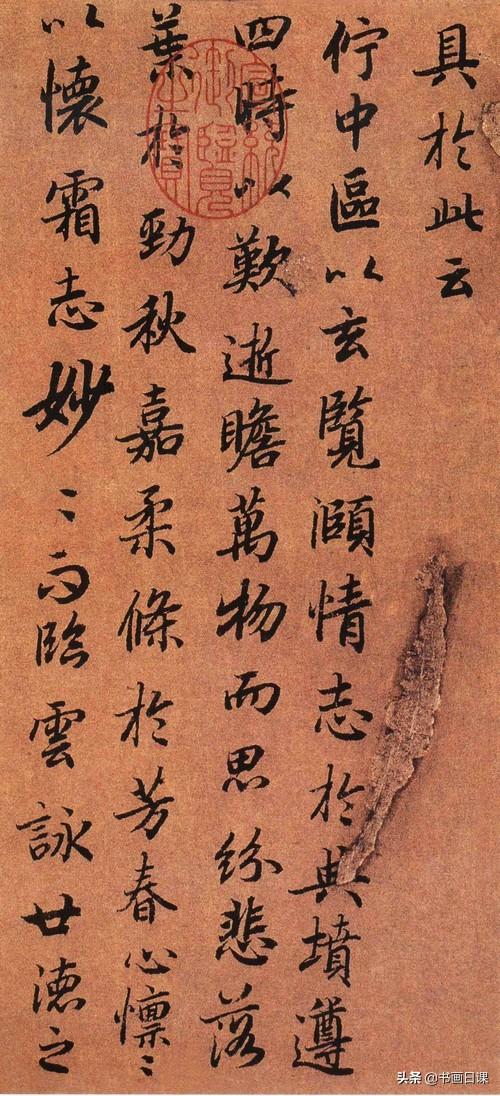 具於此云
佇中區以玄覽頤情志於典墳遵
四時以歎逝瞻萬物而思紛悲落
葉於勁秋嘉柔條於芳春心懔〻
以懷霜志妙〻而臨雲詠廿德之
頭条 @书画日课